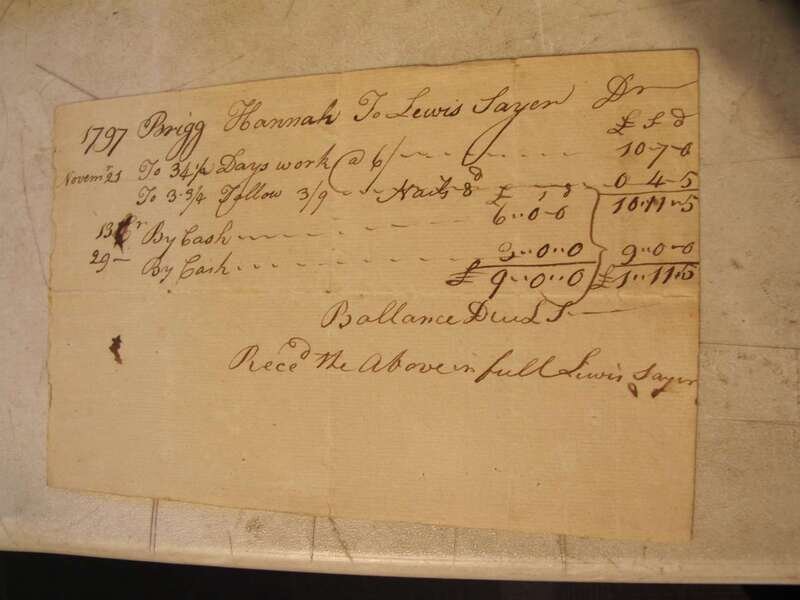 1797 Brigg Hannah To Lewis Sayer Dr
£ S d
Novemr 21 To 34 1/2 Days work @ 6/ 10-7-0
To 3-3/4 Tallow 3/9 Nails 8d 0 4-5
£ S d 10-11-5
13 By Cash 6-0-0
29 By Cash 3-0-0 9-0-0
£ 9-0-0 £1-11-5
Ballance Due L S
Reced the Above in full Lewis Sayer